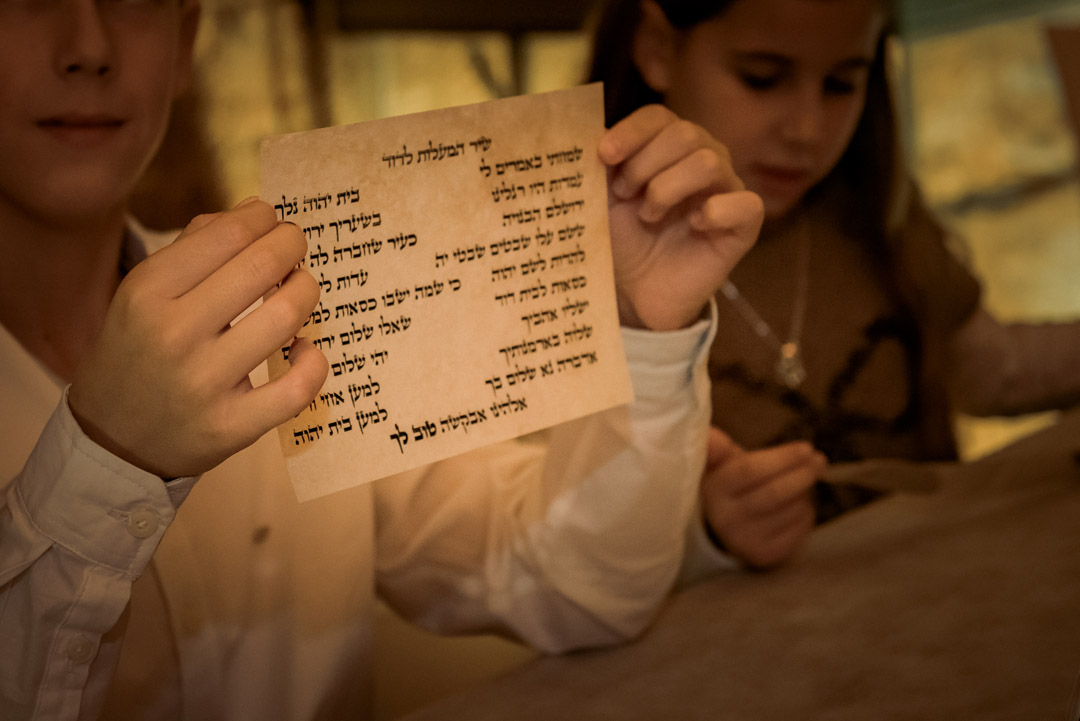 שיר המעלות לדוד
שמחתי באמרים לי בית יהוה נלך
עמדות היו רגלינו בשעריך
ירושלם הבנויה כעיר שחברה לה
ששם עלו שבטים שבטי יה עדות
להדות לשם יהוה כי שמה ישבו כסאות
כסאות לבית דוד שאלו שלום
ישליו אהביך יהי שלום
שלוה בארמנתיך למען אחי
אדברה נא שלום בך למען בית יהוה
אלהינו אבקשה טוב לך